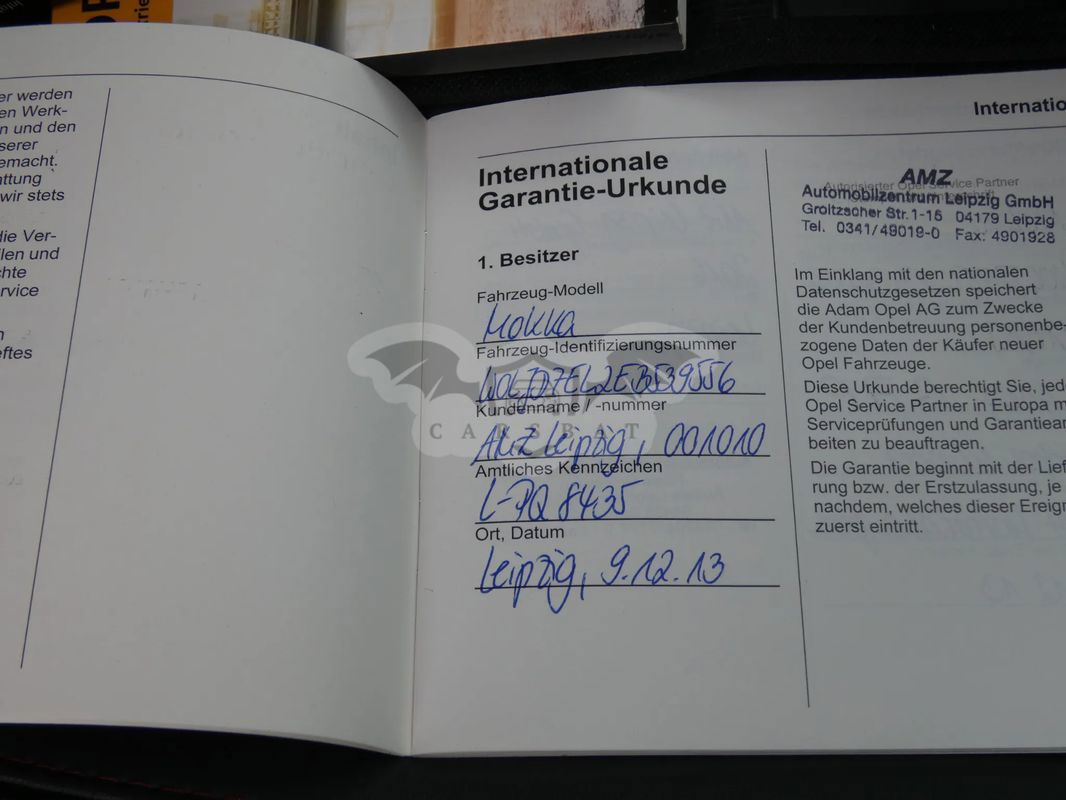 er werden
en Werk-
n und den
serer
emacht.
attung
wir stets
die Ver-
ilen und
chte
rvice
n
eftes
Internationale
Garantie-Urkunde
1. Besitzer
Fahrzeug-Modell
Mokka
Fahrzeug-Identifizierungsnummer
W0LJD7EL2EB539556
Kundenname / -nummer
AMZ Leipzig, 001010
Amtliches Kennzeichen
L-PQ 8435
Ort, Datum
Leipzig, 9.12.13
CARSBAT
Internatio
AMZ
Autorisierter Opel Service Partner
Automobilzentrum Leipzig GmbH
Groitzscher Str. 1-15 04179 Leipzig
Tel. 0341/49019-0 Fax: 4901928
Im Einklang mit den nationalen
Datenschutzgesetzen speichert
die Adam Opel AG zum Zwecke
der Kundenbetreuung personenbe-
zogene Daten der Käufer neuer
Opel Fahrzeuge.
Diese Urkunde berechtigt Sie, jede
Opel Service Partner in Europa m
Serviceprüfungen und Garantiear
beiten zu beauftragen.
Die Garantie beginnt mit der Lief
rung bzw. der Erstzulassung, je
nachdem, welches dieser Ereign
zuerst eintritt.